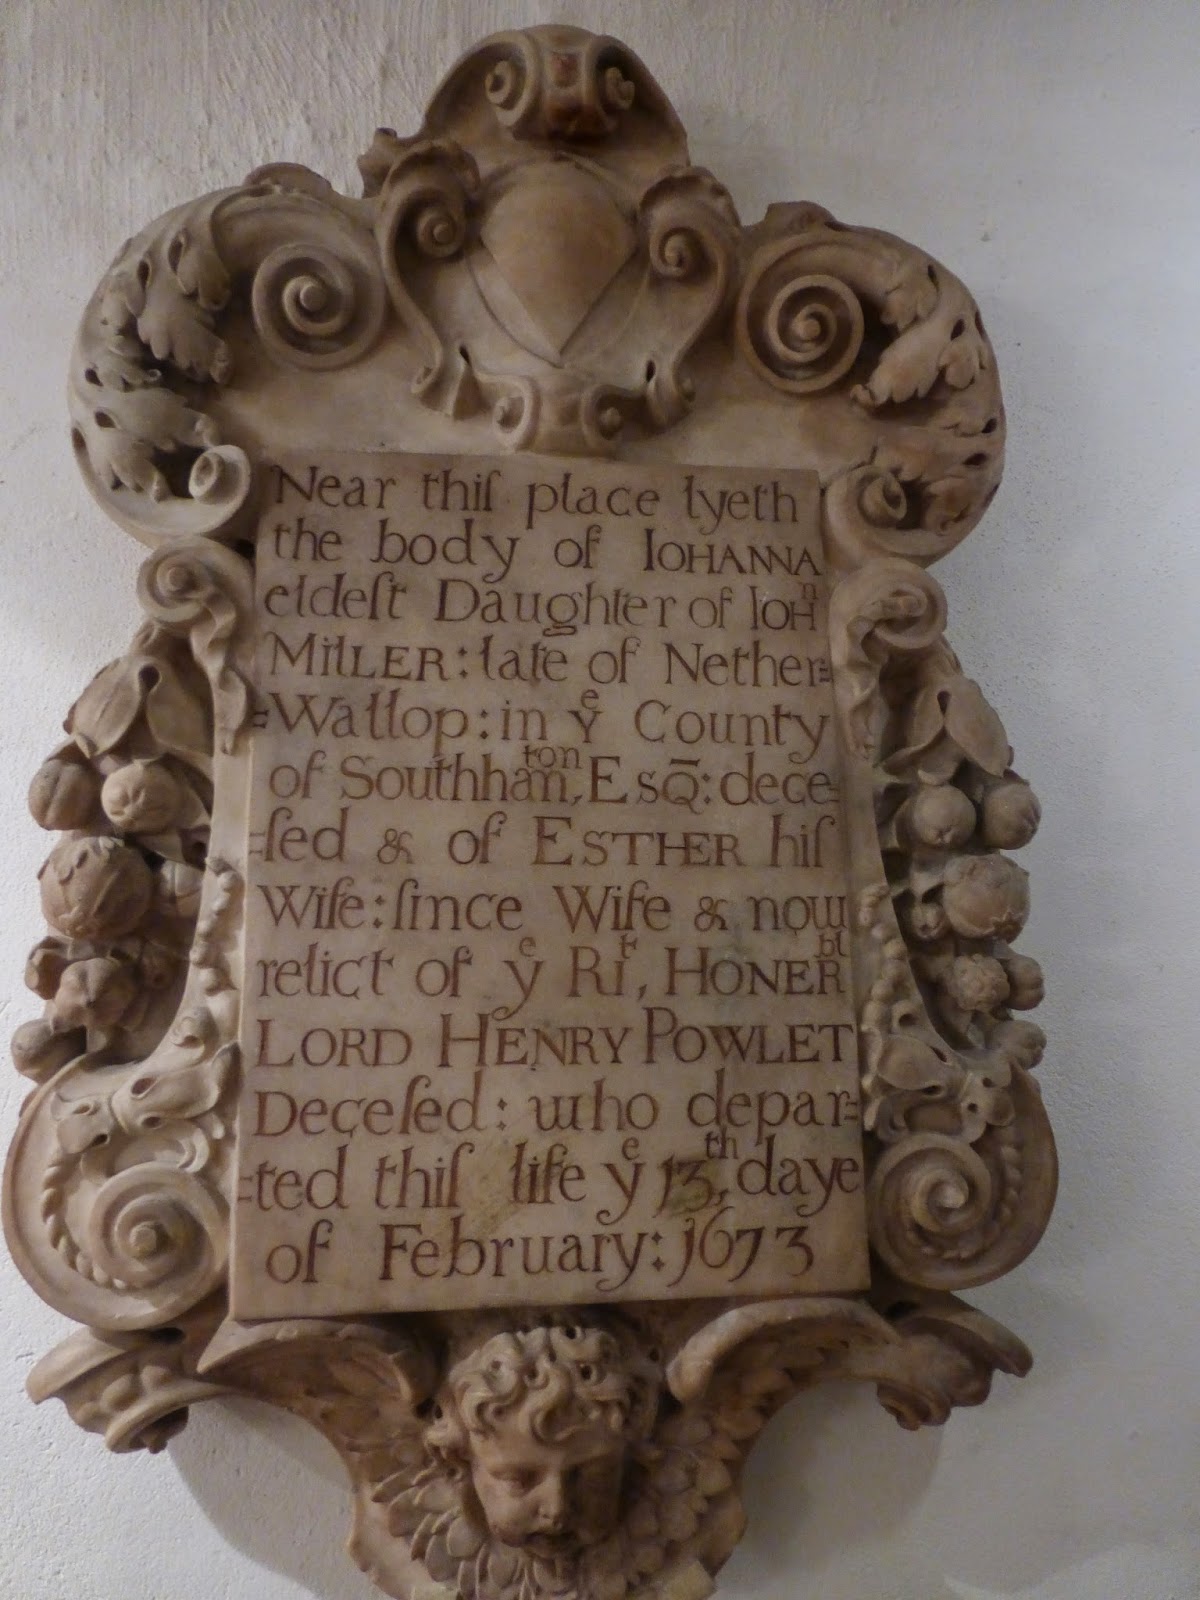 Near thiſ place lyeth
the body of IOHANNA
eldeſt Daughter of IOHⁿ
MilLER: late of Nether=
=Wallop: in yᵉ County
of Southhamᵗᵒⁿ, EsQ̄: dece=
=ſed & of ESTHER hiſ
Wife: ſince Wife & now
relict of yᵉ Riᵗ, HONERᵇˡ
LORD HENRY POWLET
Deceſed: who depar=
=ted thiſ life yᵉ 13ᵗʰ, daye
of February: 1673